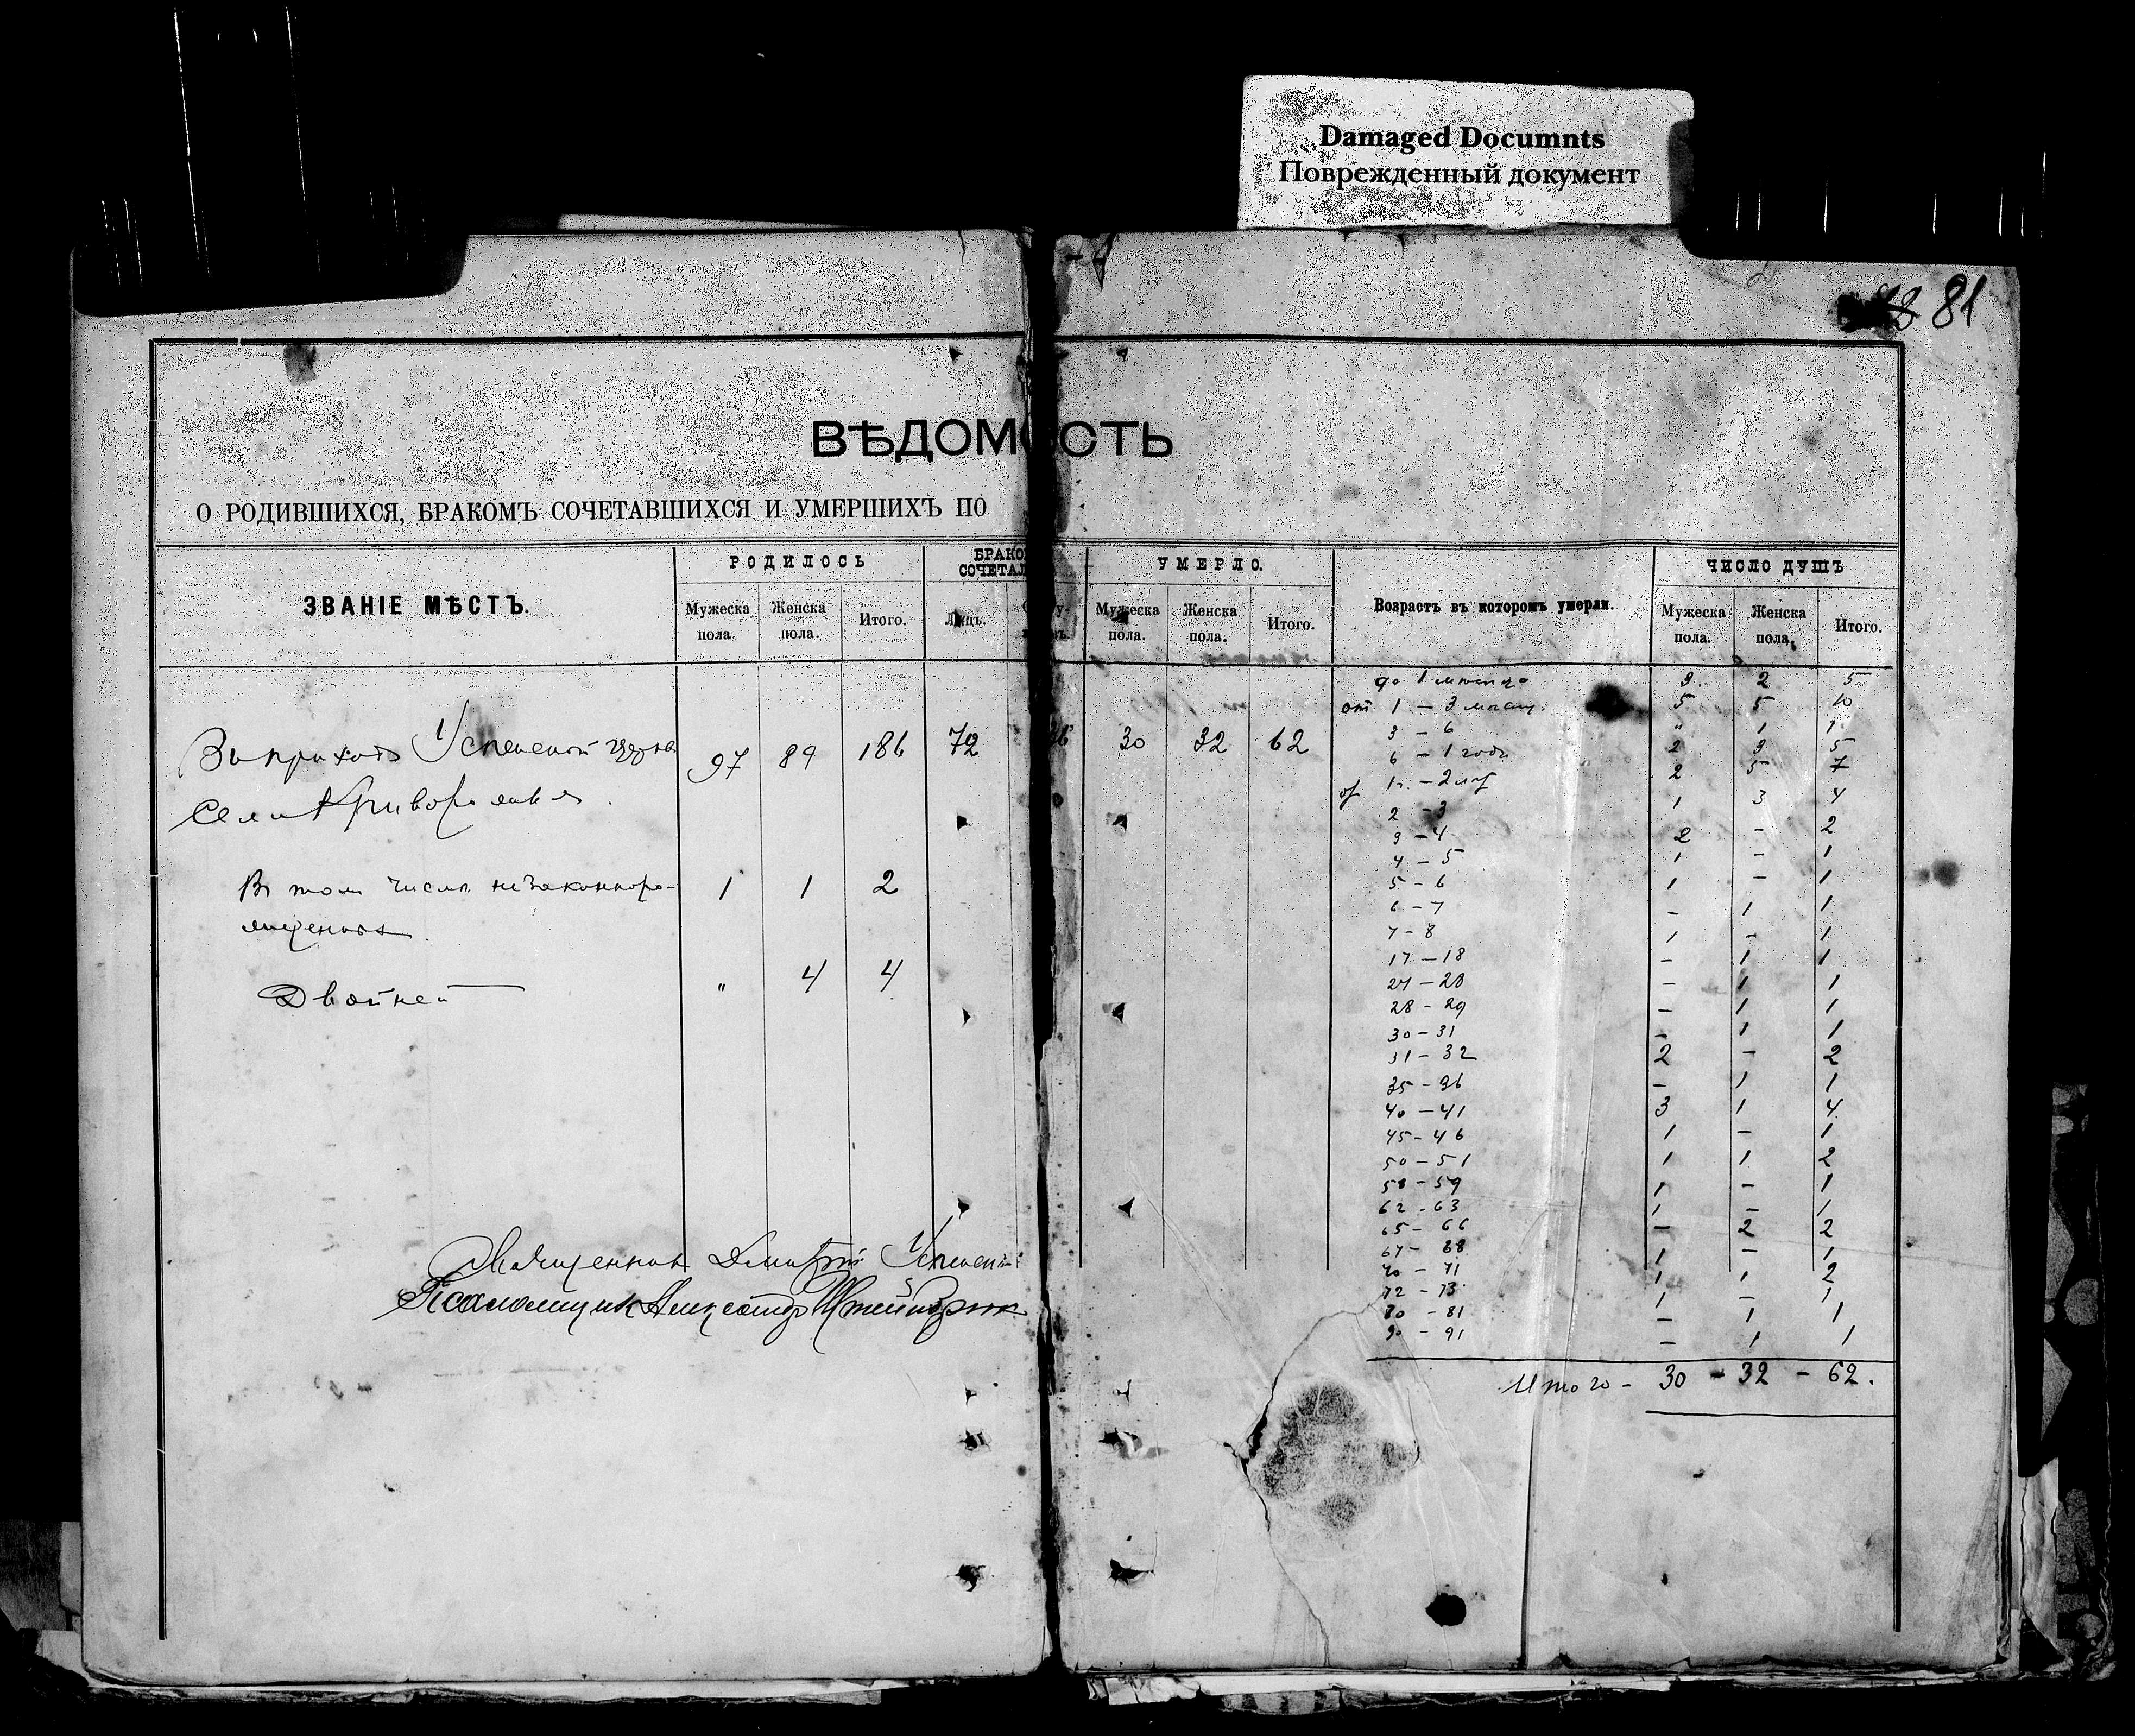 Damaged Documnts
Поврежденный документ
81
ВѢДОМОСТЬ
О РОДИВШИХСЯ, БРАКОМЪ СОЧЕТАВШИХСЯ И УМЕРШИХЪ ПО
ЗВАНІЕ МѢСТЪ. РОДИЛОСЬ БРАКО СОЧЕТАЛ УМЕРЛО. Возрастъ въ которомъ умерли. ЧИСЛО ДУШЪ
Мужеска пола. Женска пола. Итого. Лицъ. Мужеска пола. Женска пола. Итого. Мужеска пола. Женска пола. Итого.
до 1 мѣсяца 3. 2 5
от 1 — 3 мѣсяц. 5 5 10
3 — 6 " 1 1
Въ приходѣ Успенской церкви 97 89 186 72 36 30 32 62
6 — 1 года 2 3 5
1 г. — 2 лѣт 2 5 7
Села
2 — 3 1 3 4
3 — 4 2 - 2
4 — 5 1 - 1
В том числѣ незаконноро- 1 1 2
5 - 6 1 - 1
жденных
6 - 7 - 1 1
7 - 8 1 - 1
17 — 18 - 1 1
Двойней " 4 4
27 — 28 - 1 1
28 - 29 - 1 1
30 — 31 - 1 1
31 — 32 2 - 2
35 - 36 - 1 1
40 — 41 3 1 4
45 - 46 1 - 1
50 — 51 1 1 2
58 - 59 1 - 1
62 - 63 1 - 1
65 - 66 - 2 2
67 - 68 1 - 1
Священник Дмитрій
70 - 71 1 1 2
72 - 73 1 - 1
Псаломщик Александр
80 - 81 - 1 1
90 - 91 - 1 1
Итого - 30 - 32 - 62.